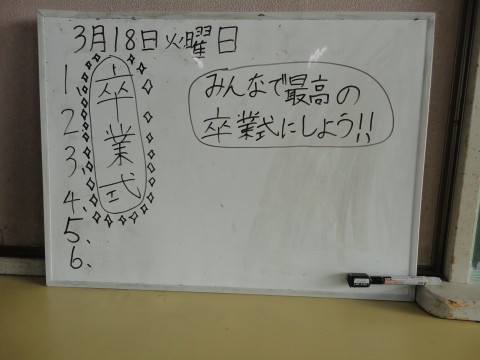 3月18日火曜日
1、
2、
3、
4、
5、
6、
卒業式
みんなで最高の
卒業式にしよう!!